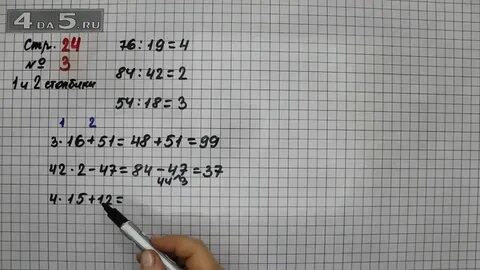 4DA5.RU
Стр. 24
№ 3
1 и 2 столбики
76 : 19 = 4
84 : 42 = 2
54 : 18 = 3
1 2
3 · 16 + 51 = 48 + 51 = 99
42 · 2 - 47 = 84 - 47 = 37
44 3
4 · 15 + 12 =